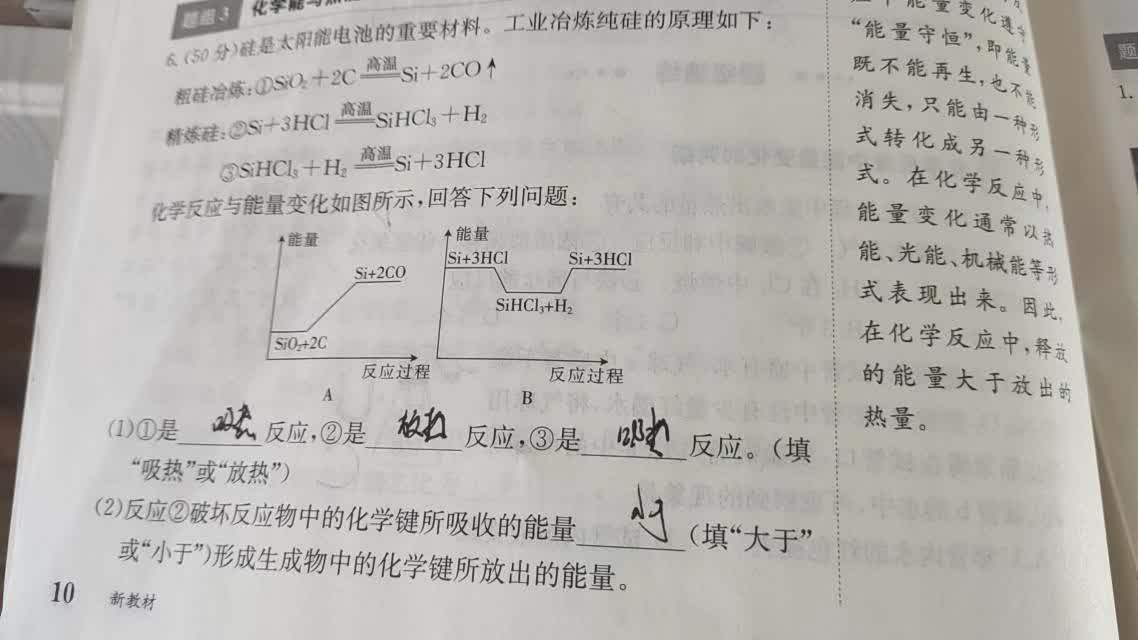 题组3 化学能与热
6.(50分)硅是太阳能电池的重要材料。工业冶炼纯硅的原理如下：
粗硅冶炼：①SiO₂＋2C 高温 Si＋2CO↑
精炼硅：②Si＋3HCl 高温 SiHCl₃＋H₂
③SiHCl₃＋H₂ 高温 Si＋3HCl
化学反应与能量变化如图所示，回答下列问题：
能量
Si+2CO
SiO₂+2C
反应过程
A
能量
Si+3HCl
Si+3HCl
SiHCl₃+H₂
反应过程
B
(1)①是 吸热 反应，②是 放热 反应，③是 吸热 反应。(填
“吸热”或“放热”)
(2)反应②破坏反应物中的化学键所吸收的能量 小于 (填“大于”
或“小于”)形成生成物中的化学键所放出的能量。
10 新教材
能量变化遵守
“能量守恒”，即能量
既不能再生，也不能
消失，只能由一种形
式转化成另一种形
式。在化学反应中，
能量变化通常以热
能、光能、机械能等形
式表现出来。因此，
在化学反应中，释放
的能量大于放出的
热量。
题
1.